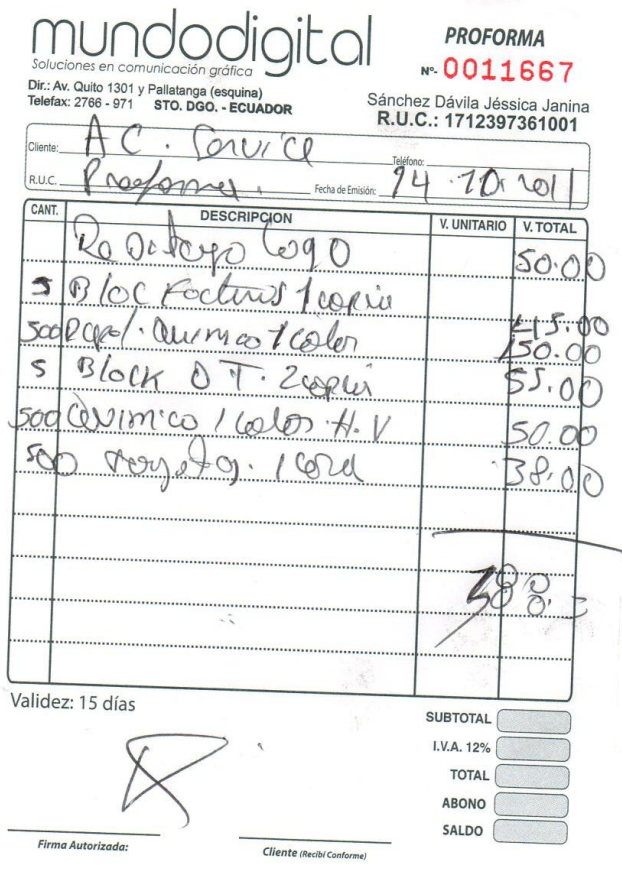 mundodigital
Soluciones en comunicación gráfica
Dir.: Av. Quito 1301 y Pallatanga (esquina)
Telefax: 2766 - 971 STO. DGO. - ECUADOR
PROFORMA
Nº- 0011667
Sánchez Dávila Jéssica Janina
R.U.C.: 1712397361001
Cliente: A C. Service Teléfono:
R.U.C. Proforma. Fecha de Emisión: 14 · 10 · 2011
CANT. DESCRIPCION V. UNITARIO V. TOTAL
Logo 50.00
5 Bloc Facturas 1 copia 45.00
500 Papel. Quimico 1 color 50.00
5 Block O T. 2 copia 55.00
500 Quimico 1 color H.V 50.00
500 Tarjetas. 1 cara 38.00
Validez: 15 días
SUBTOTAL
I.V.A. 12%
TOTAL
ABONO
SALDO
Firma Autorizada: Cliente (Recibí Conforme)